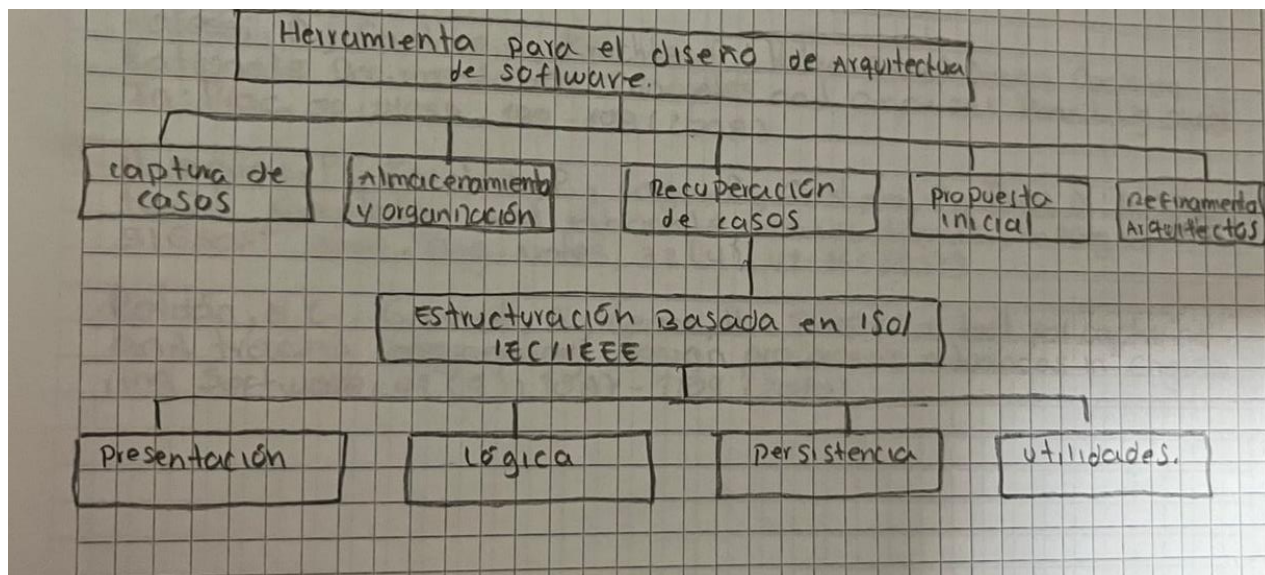 Herramienta para el diseño de Arquitectua
de software.
captura de
casos
Almacenamiento
y organización
Recuperación
de casos
Propuesta
inicial
Refinamento
Arquitectos
Estructuración Basada en ISO/
IEC/IEEE
Presentación
Lógica
Persistencia
Utilidades.